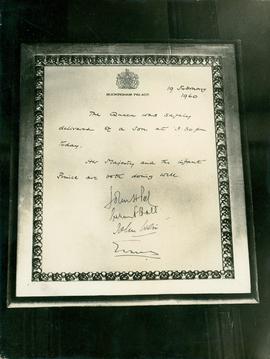 BUCKINGHAM PALACE
19 February
1960
The Queen was safely
delivered of a Son at 3.30 pm
today.
Her Majesty and the infant
Prince are both doing well.